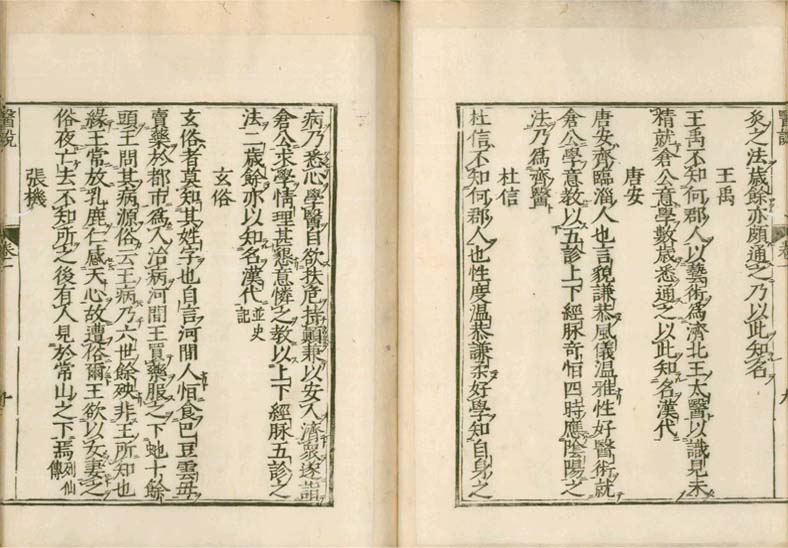 醫說 卷一 九
灸之法歲餘亦頗通之乃以此知名
王禹
王禹不知何郡人以藝術爲濟北王太醫以識見未
精就倉公意學數歲悉通之以此知名漢代
唐安
唐安齊臨淄人也言貌謙恭風儀温雅性好醫術就
倉公學意教以五診上下經脉奇恒四時應陰陽之
法乃爲齊醫
杜信
杜信不知何郡人也性度温恭謙柔好學知自身之
病乃悉心學醫自欲扶危拯顛兼以安人濟衆遂詣
倉公求學情理甚懇意憐之教以上下經脉五診之
法二歲餘亦以知名漢代並史記
玄俗
玄俗者莫知其姓字也自言河間人恒食巴豆雲母
賣藥於都市爲人治病河間王買藥服之下虵十餘
頭王問其病源俗云王病乃六世餘殃非王所知也
緣王常放乳鹿仁感天心故遭俗爾王欲以女妻之
俗夜亡去不知所之後有人見於常山之下焉列仙傳
張機
醫說 卷一 十